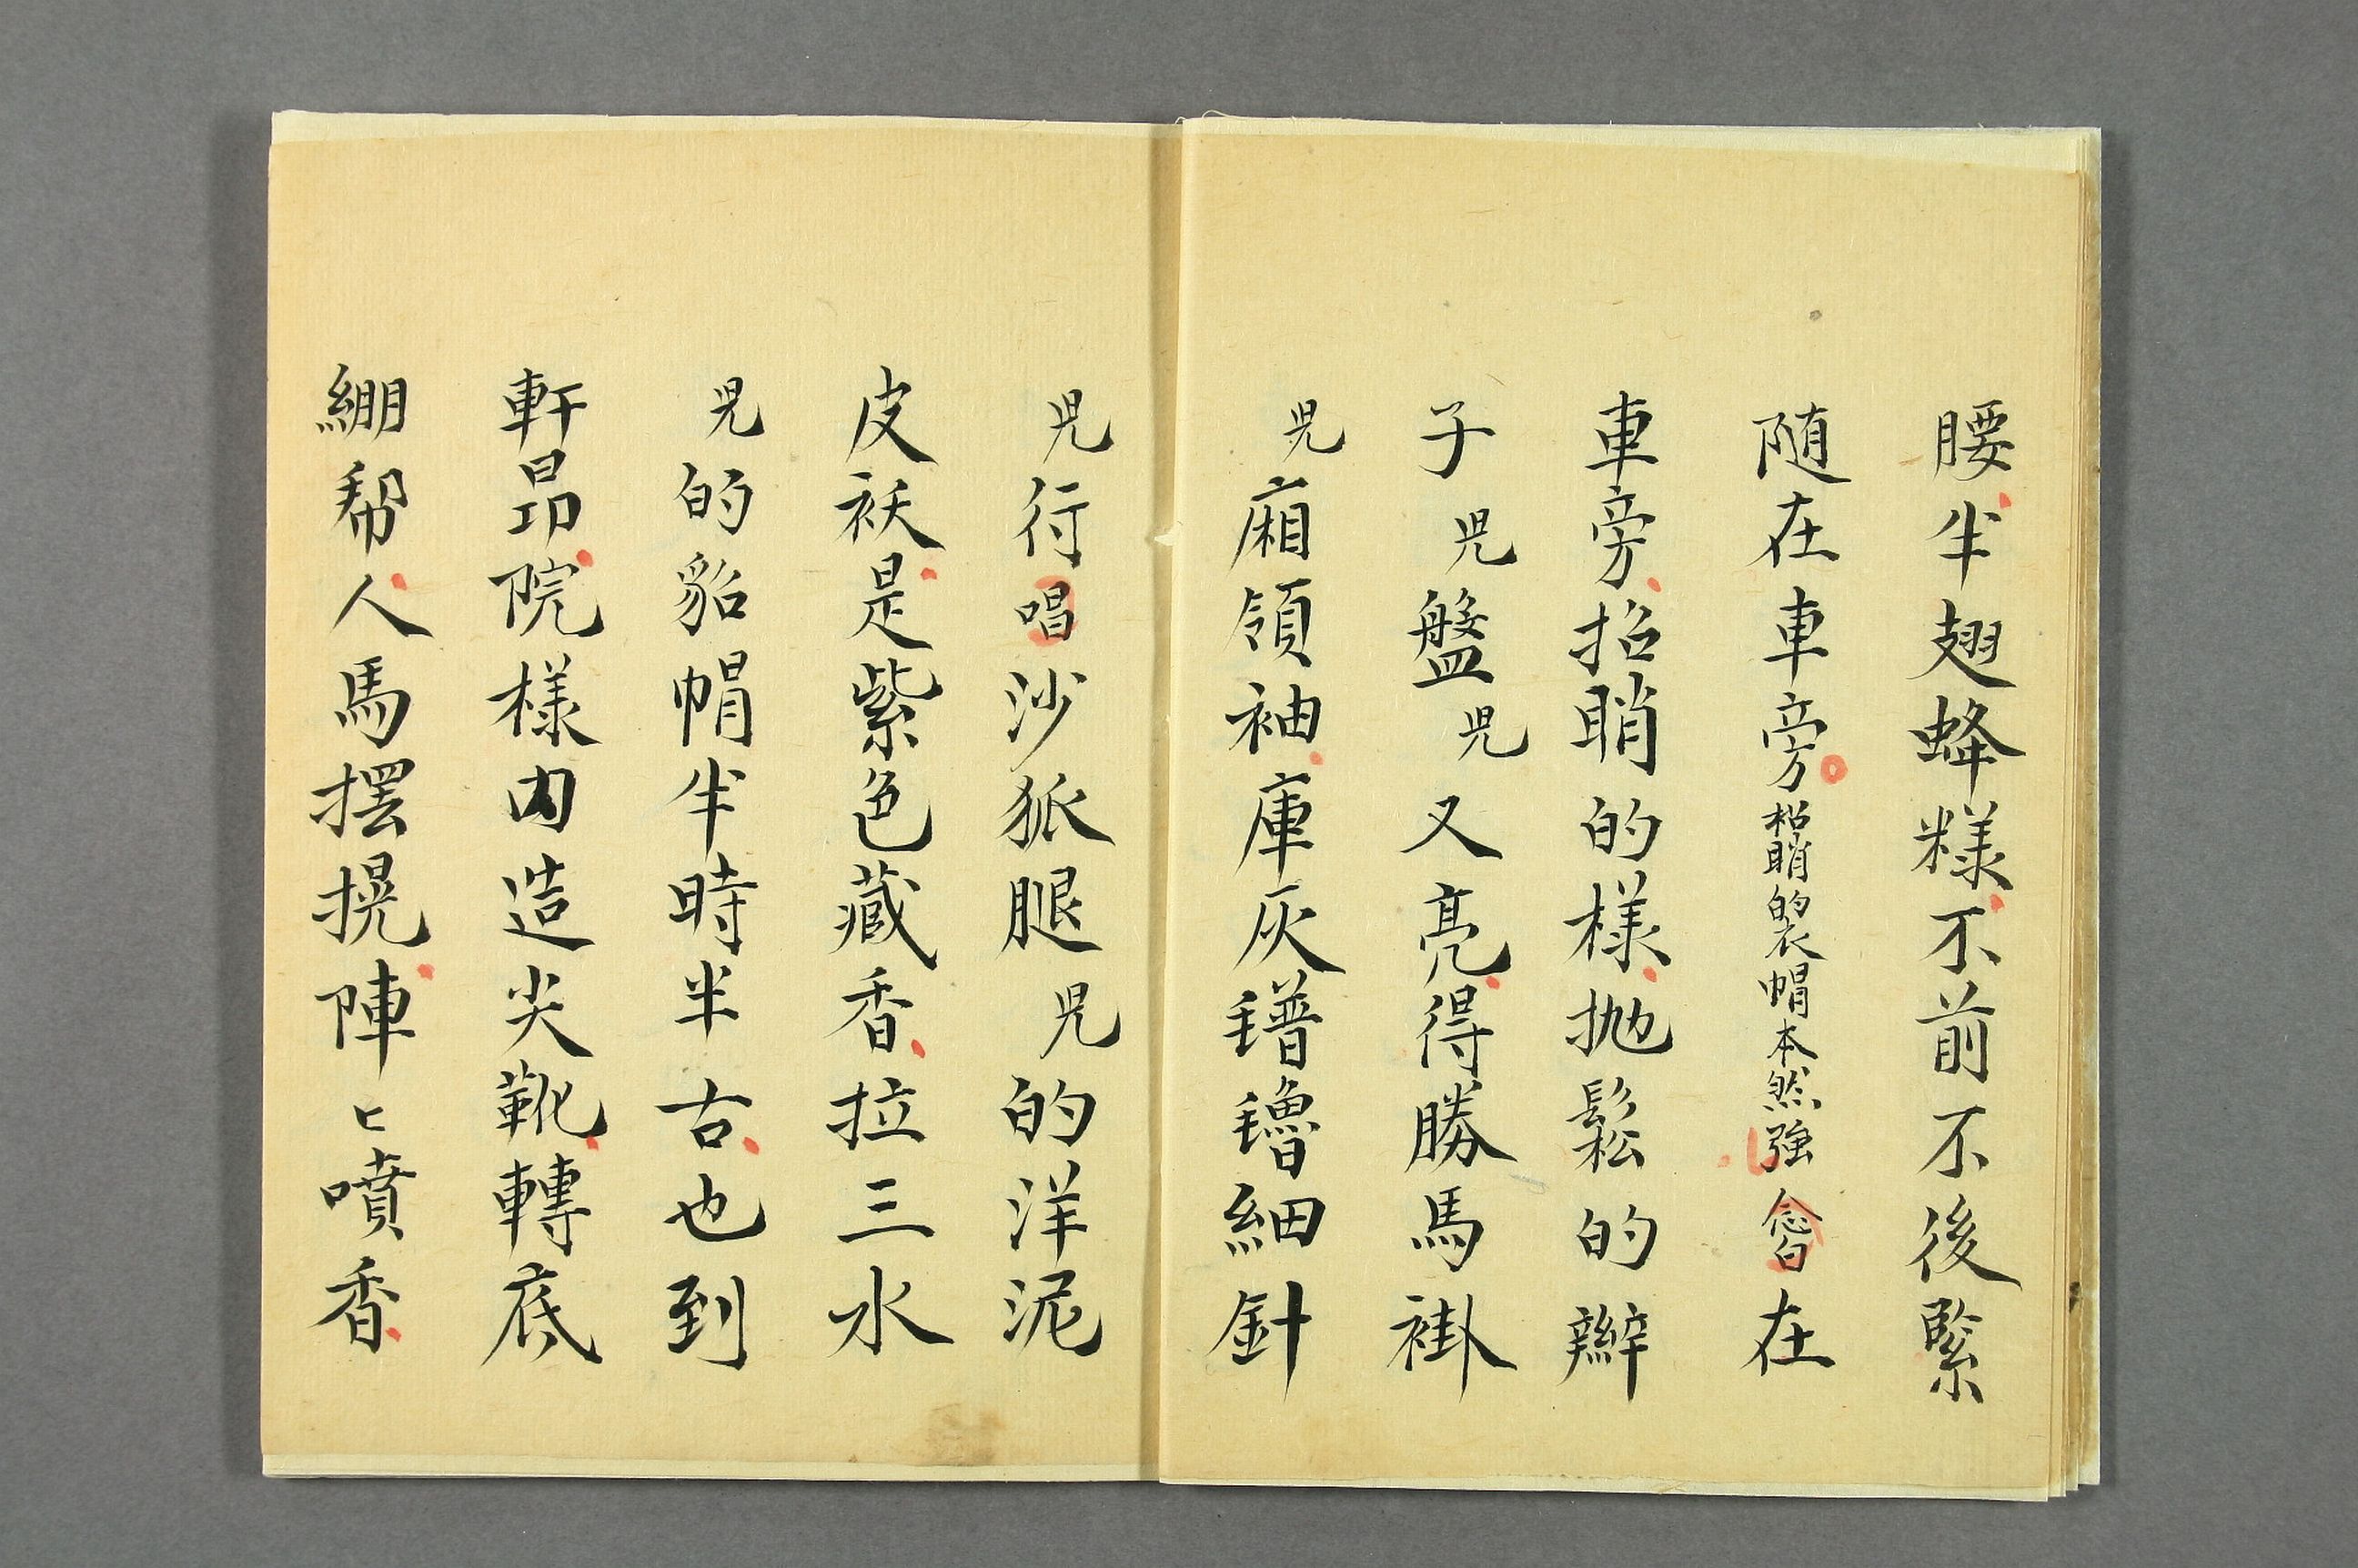 腰半翅蜂樣不前不後緊
隨在車旁招眧的衣帽本然強念白在
車旁招眧的樣拋鬆的辮
子兒盤兒又亮得勝馬褂
兒廂領袖庫灰氆氌細針
兒行唱沙狐腿兒的洋泥
皮袄是紫色藏香拉三水
兒的貂帽半時半古也到
軒昂院樣內造尖靴轉底
繃帮人馬摆摸陣匕噴香